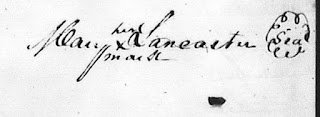 her
Mary X Lancaster
mark
Seal